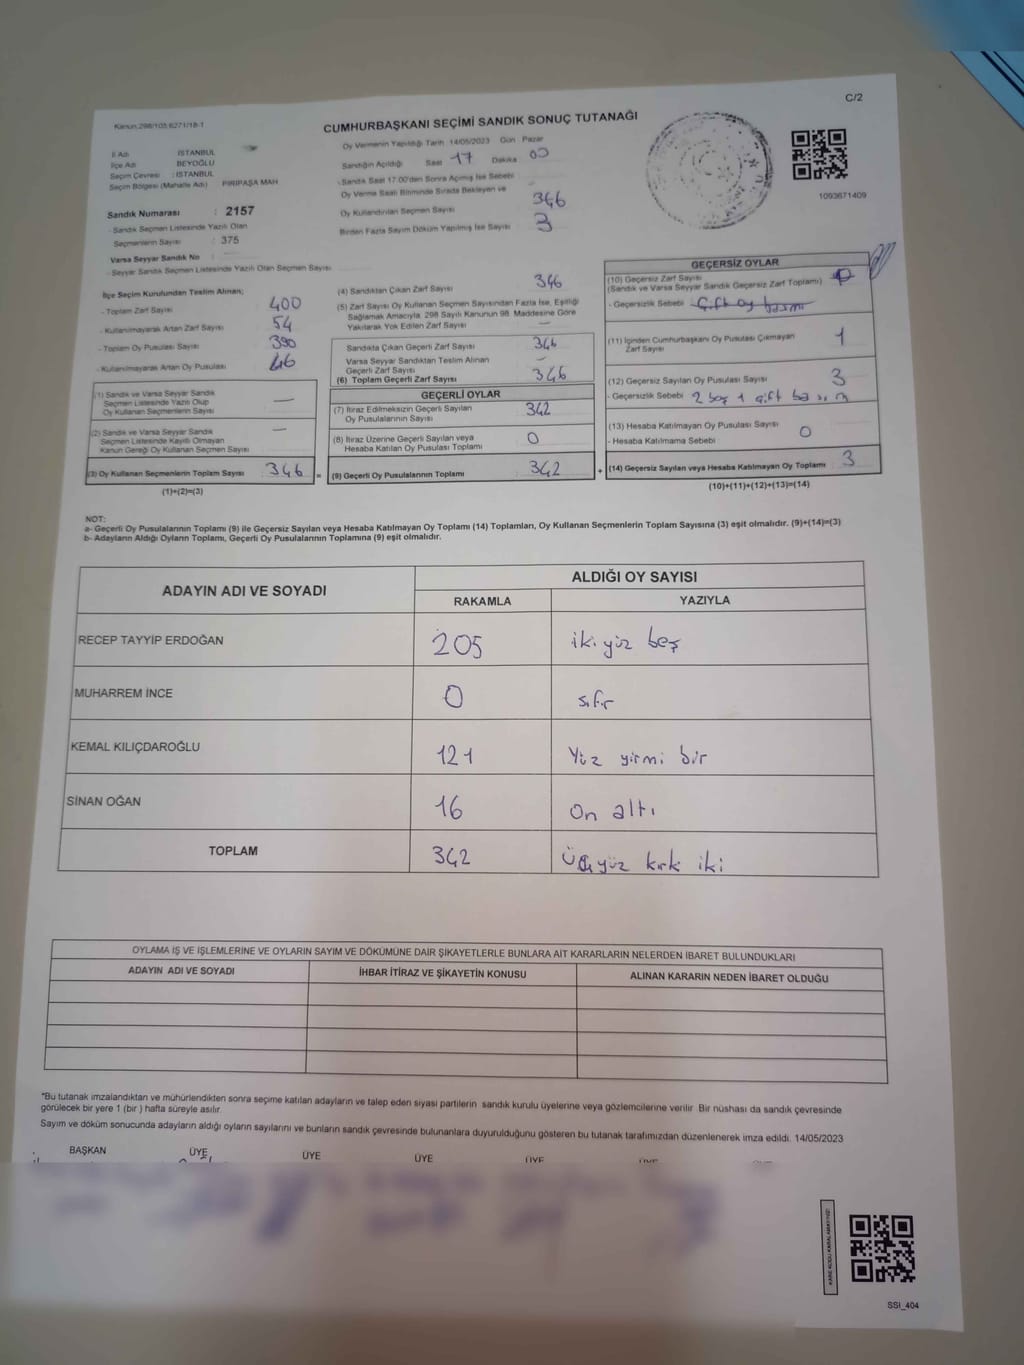 C/2
Kanun:298/105;6271/18-1
CUMHURBAŞKANI SEÇİMİ SANDIK SONUÇ TUTANAĞI
İl Adı : İSTANBUL
İlçe Adı : BEYOĞLU
Seçim Çevresi : İSTANBUL
Seçim Bölgesi (Mahalle Adı) : PİRİPAŞA MAH
Sandık Numarası : 2157
- Sandık Seçmen Listesinde Yazılı Olan
Seçmenlerin Sayısı : 375
Varsa Seyyar Sandık No :
- Seyyar Sandık Seçmen Listesinde Yazılı Olan Seçmen Sayısı
Oy Vermenin Yapıldığı Tarih 14/05/2023 Gün Pazar
Sandığın Açıldığı Saat 17 Dakika 00
- Sandık Saat 17.00'den Sonra Açılmış İse Sebebi
Oy Verme Saati Bitiminde Sırada Bekleyen ve
Oy Kullandırılan Seçmen Sayısı 346
Birden Fazla Sayım Döküm Yapılmış İse Sayısı 3
1093671409
İlçe Seçim Kurulundan Teslim Alınan;
- Toplam Zarf Sayısı 400
- Kullanılmayarak Artan Zarf Sayısı 54
- Toplam Oy Pusulası Sayısı 390
- Kullanılmayarak Artan Oy Pusulası 46
(1) Sandık ve Varsa Seyyar Sandık
Seçmen Listesinde Yazılı Olup
Oy Kullanan Seçmenlerin Sayısı —
(2) Sandık ve Varsa Seyyar Sandık
Seçmen Listesinde Kayıtlı Olmayan
Kanun Gereği Oy Kullanan Seçmen Sayısı —
(3) Oy Kullanan Seçmenlerin Toplam Sayısı 346 =
(1)+(2)=(3)
(4) Sandıktan Çıkan Zarf Sayısı 346
(5) Zarf Sayısı Oy Kullanan Seçmen Sayısından Fazla İse, Eşitliği
Sağlamak Amacıyla, 298 Sayılı Kanunun 98. Maddesine Göre
Yakılarak Yok Edilen Zarf Sayısı —
Sandıkta Çıkan Geçerli Zarf Sayısı 346
Varsa Seyyar Sandıktan Teslim Alınan
Geçerli Zarf Sayısı —
(6) Toplam Geçerli Zarf Sayısı 346
GEÇERLİ OYLAR
(7) İtiraz Edilmeksizin Geçerli Sayılan
Oy Pusulalarının Sayısı 342
(8) İtiraz Üzerine Geçerli Sayılan veya
Hesaba Katılan Oy Pusulası Toplamı 0
(9) Geçerli Oy Pusulalarının Toplamı 342 +
GEÇERSİZ OYLAR
(10) Geçersiz Zarf Sayısı
(Sandık ve Varsa Seyyar Sandık Geçersiz Zarf Toplamı)
- Geçersizlik Sebebi Çift oy basımı
(11) İçinden Cumhurbaşkanı Oy Pusulası Çıkmayan
Zarf Sayısı 1
(12) Geçersiz Sayılan Oy Pusulası Sayısı 3
- Geçersizlik Sebebi 2 boş 1 çift basım
(13) Hesaba Katılmayan Oy Pusulası Sayısı 0
- Hesaba Katılmama Sebebi
(14) Geçersiz Sayılan veya Hesaba Katılmayan Oy Toplamı 3
(10)+(11)+(12)+(13)=(14)
NOT:
a- Geçerli Oy Pusulalarının Toplamı (9) ile Geçersiz Sayılan veya Hesaba Katılmayan Oy Toplamı (14) Toplamları, Oy Kullanan Seçmenlerin Toplam Sayısına (3) eşit olmalıdır. (9)+(14)=(3)
b- Adayların Aldığı Oyların Toplamı, Geçerli Oy Pusulalarının Toplamına (9) eşit olmalıdır.
ADAYIN ADI VE SOYADI
ALDIĞI OY SAYISI
RAKAMLA YAZIYLA
RECEP TAYYİP ERDOĞAN 205 iki yüz beş
MUHARREM İNCE 0 sıfır
KEMAL KILIÇDAROĞLU 121 Yüz yirmi bir
SİNAN OĞAN 16 On altı
TOPLAM 342 Üçyüz kırk iki
OYLAMA İŞ VE İŞLEMLERİNE VE OYLARIN SAYIM VE DÖKÜMÜNE DAİR ŞİKAYETLERLE BUNLARA AİT KARARLARIN NELERDEN İBARET BULUNDUKLARI
ADAYIN ADI VE SOYADI İHBAR İTİRAZ VE ŞİKAYETİN KONUSU ALINAN KARARIN NEDEN İBARET OLDUĞU
"Bu tutanak imzalandıktan ve mühürlendikten sonra seçime katılan adayların ve talep eden siyasi partilerin sandık kurulu üyelerine veya gözlemcilerine verilir Bir nüshası da sandık çevresinde
görülecek bir yere 1 (bir ) hafta süreyle asılır.
Sayım ve döküm sonucunda adayların aldığı oyların sayılarını ve bunların sandık çevresinde bulunanlara duyurulduğunu gösteren bu tutanak tarafımızdan düzenlenerek imza edildi. 14/05/2023
BAŞKAN ÜYE ÜYE ÜYE ÜYE
SSI_404